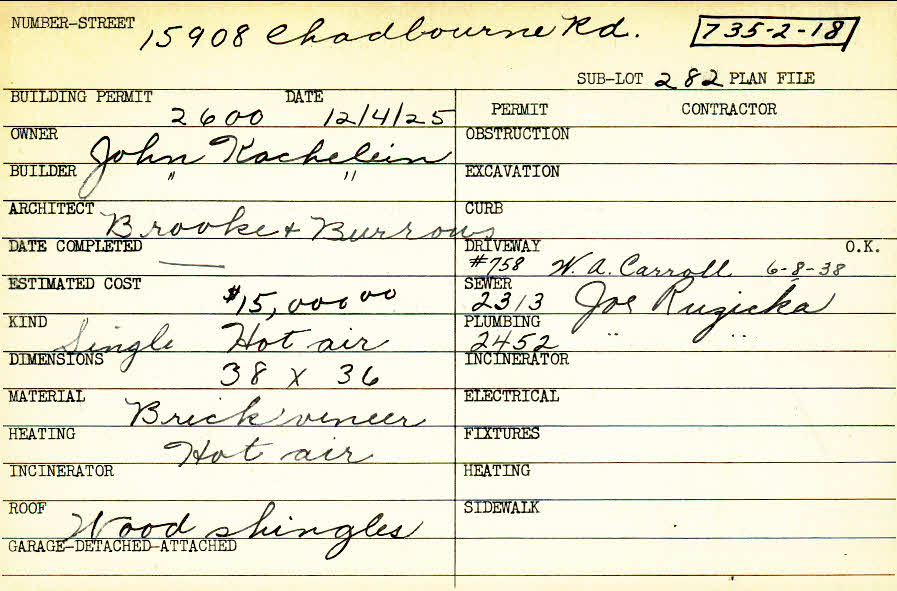 NUMBER-STREET 15908 Chadbourne Rd. 735-2-18
SUB-LOT 282 PLAN FILE
BUILDING PERMIT DATE PERMIT CONTRACTOR
2600 12/4/25
OWNER John Kachelein OBSTRUCTION
BUILDER " " EXCAVATION
ARCHITECT Brooke + Burrows CURB
DATE COMPLETED — DRIVEWAY O.K.
#758 W. A. Carroll 6-8-38
ESTIMATED COST $15,000 00 SEWER 2313 Joe Ruzicka
KIND Single Hot air PLUMBING 2452 " "
DIMENSIONS 38 x 36 INCINERATOR
MATERIAL Brick veneer ELECTRICAL
HEATING Hot air FIXTURES
INCINERATOR HEATING
ROOF Wood shingles SIDEWALK
GARAGE-DETACHED-ATTACHED